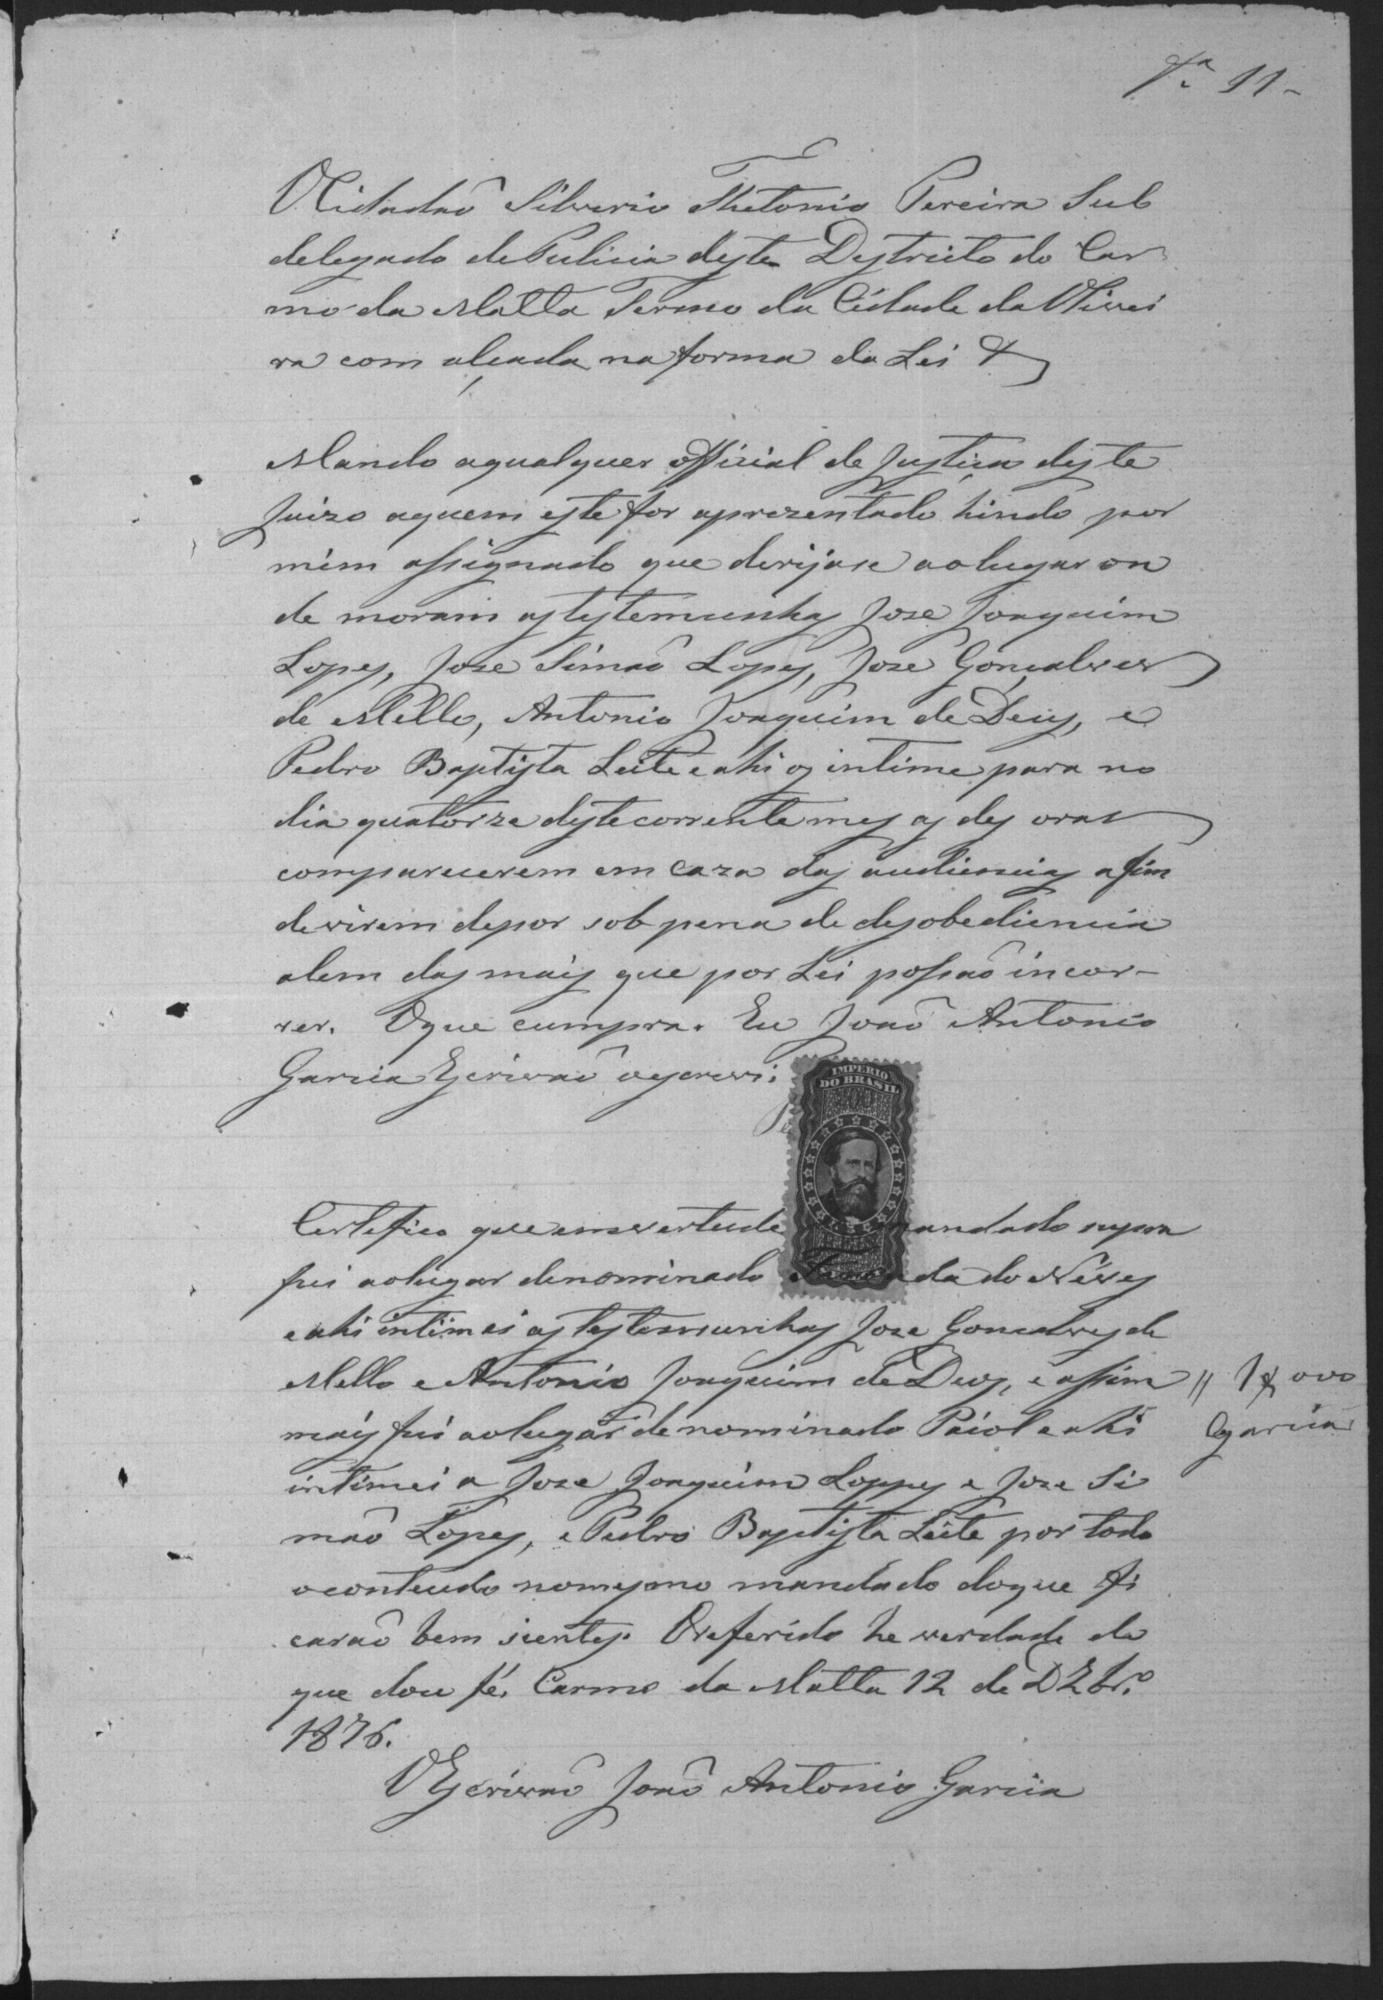 11
O Cidadaõ Silverio Thetonio Pereira Sub
delegado de Pulicia deste Destricto do Car
mo da Matta Termo da Cidade da Olivei
ra com alçada na forma da Lei &
Mando aqualquer official de Justiça deste
Juizo aquem este for aprezentado hindo por
mim assignado que derijase ao lugar on
de moram as testemunhas Joze Joaquim
Lopes, Joze Simaõ Lopes, Joze Gonçalves
de Mello, Antonio Joaquim de Deus, e
Pedro Baptista Leite e ahi os intime para no
dia quatorze deste corrente mes as des oras
comparecerem em caza das audiencias afim
de virem depor sob pena de desobediencia
alem das mais que por Lei possaõ incor-
rer. Oque cumpra. Eu Joaõ Antonio
Garcia Escrivaõ oescrevi.
IMPERIO
DO BRASIL
Certefico que em vertude mandado supra
fui ao lugar denominado da do Neves
e ahi intimei as testemunhas Joze Goncalves de
Mello e Antonio Joaquim de Deos, e assim
mais fui ao lugar denominado Paiol e ahi
intimei a Joze Joaquim Loppes e Joze Si
maõ Lopes, e Pedro Baptista Leite por todo
oconteudo nomesmo mandado doque fi
caraõ bem sientes. Oreferido he verdade de
que dou fé. Carmo da Matta 12 de DZbrº
1876.
O Escrivaõ Joaõ Antonio Garcia
Garcia